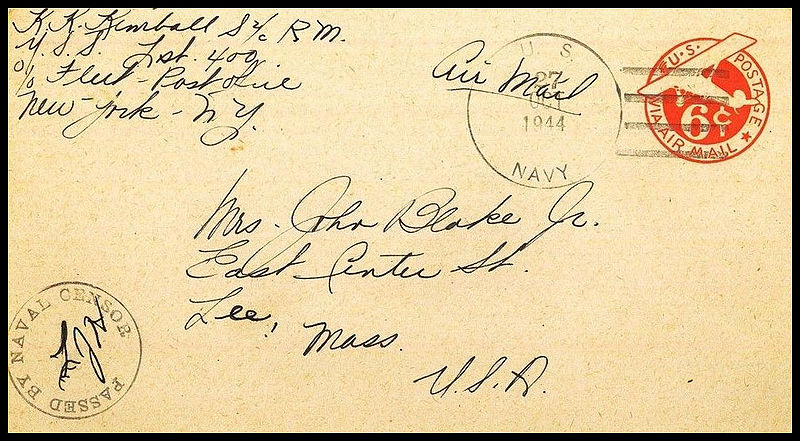 K. K. Kimball S 2/c R.M.
U.S.S. Lst. 409
c/o Fleet-Post-ofice
New-york-N.Y.
Air Mail
U. S.
27
OCT
1944
NAVY
U.S. POSTAGE
6¢
VIA AIR MAIL
Mrs. John Blake Jr.
East-Center St.
Lee, Mass.
U.S.A.
PASSED BY NAVAL CENSOR